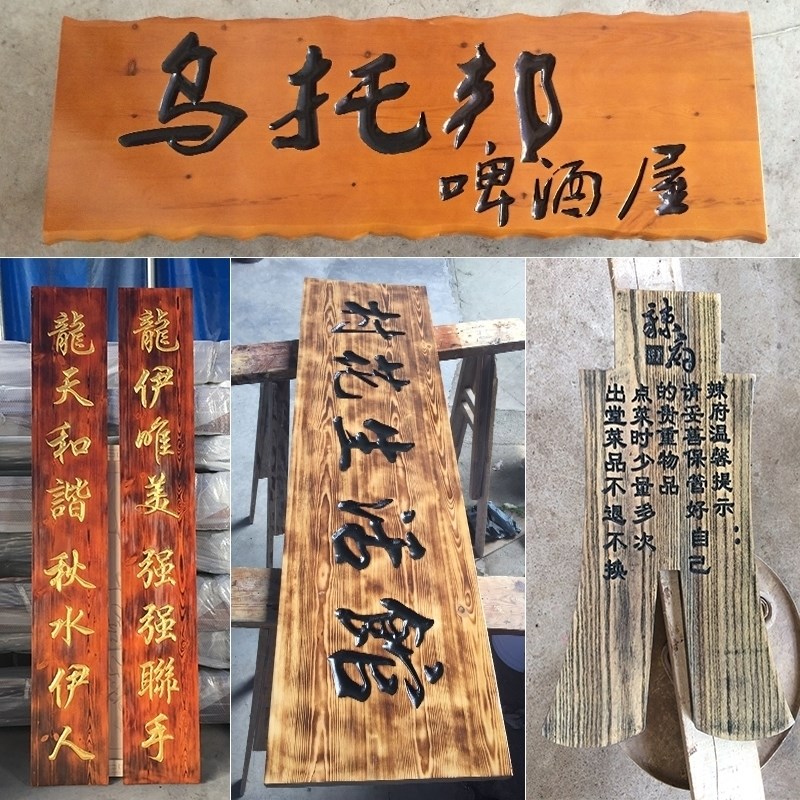 乌托邦
啤酒屋
龍伊唯美强强聯手
龍天和諧秋水伊人
村花生活館
辣府
辣府温馨提示：
请妥善保管好自己
的贵重物品
点菜时少量多次
出堂菜品不退不换